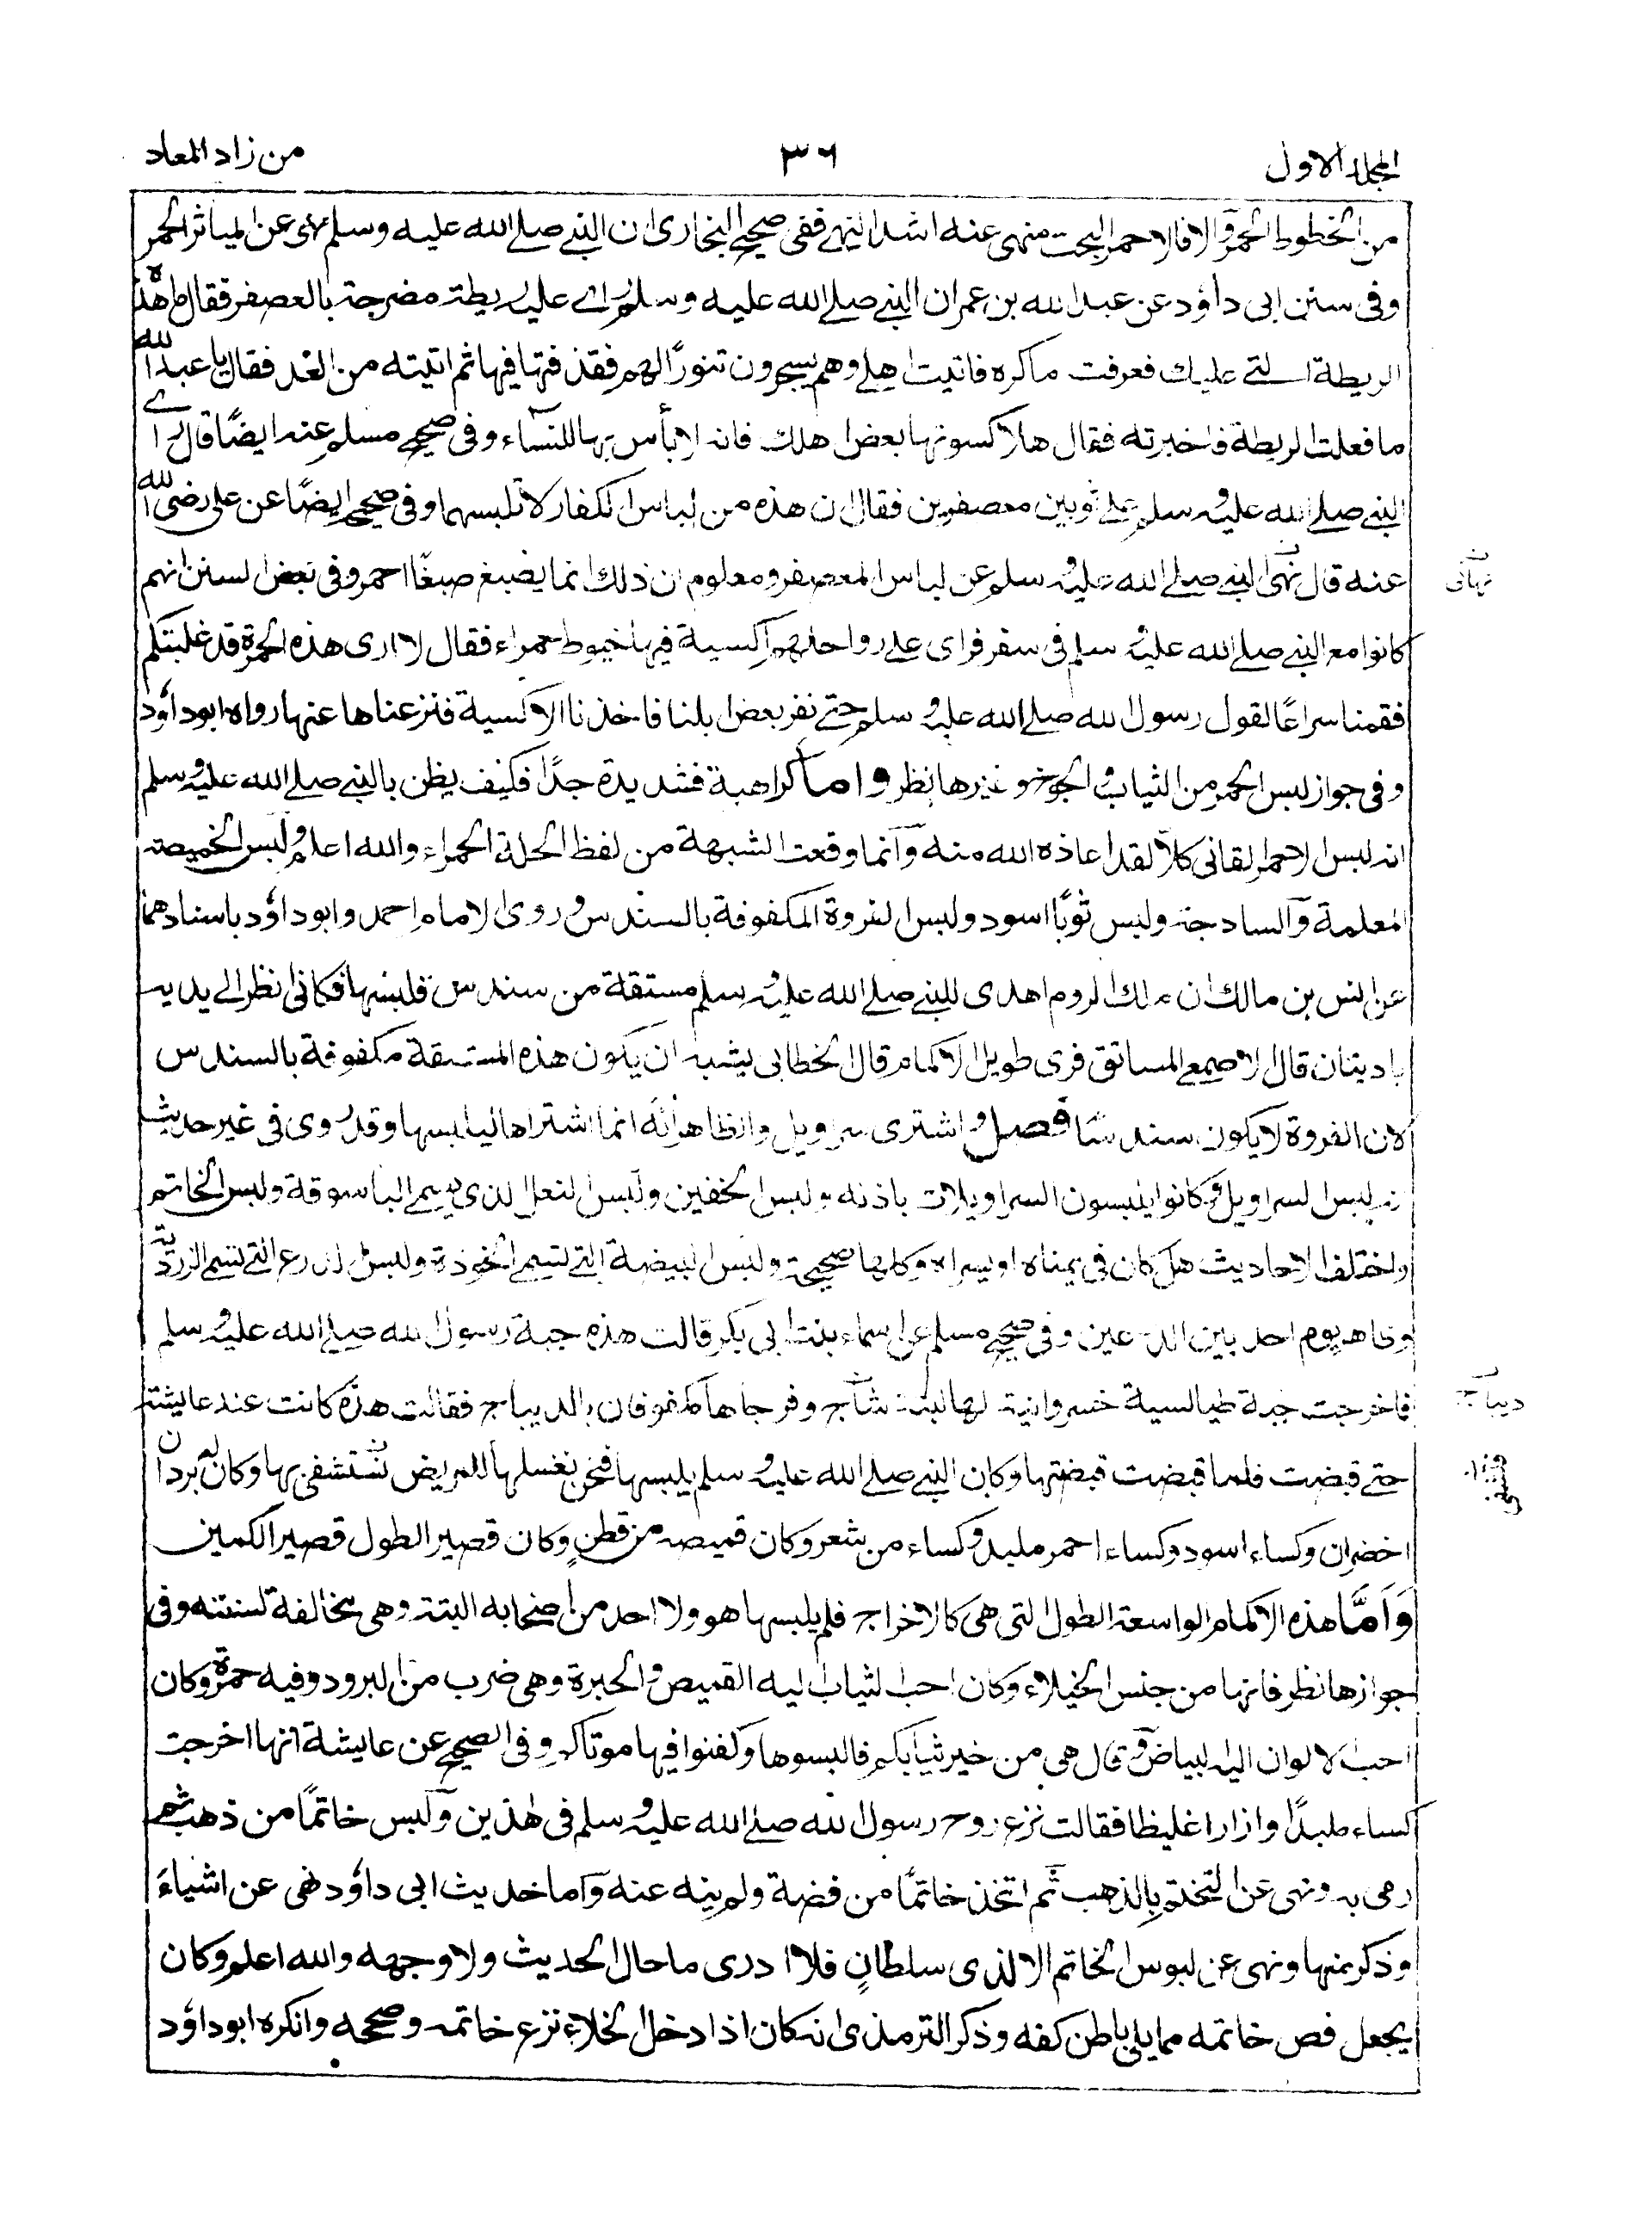 المجلد الاول
٣٦
من زاد المعاد
من الخطوط الحمر والا فالاحمر البحت منهى عنه اشد النهى ففى صحيح البخارى ان النبي صلى الله عليه وسلم نهى عن المياثر الحمر
وفى سنن ابى داؤد عن عبد الله بن عمر ان النبي صلى الله عليه وسلم راى عليه ريطة مضرجة بالعصفر فقال ما هذه
الريطة التى عليك فعرفت ما كره فاتيت اهلى وهم يسجرون تنورًا لهم فقذفتها فيها ثم اتيته من الغد فقال يا عبد الله
ما فعلت الريطة فاخبرته فقال هلا كسوتها بعض اهلك فانه لا بأس بها للنساء وفى صحيح مسلم عنه ايضًا قال راى
النبي صلى الله عليه وسلم على ثوبين معصفرين فقال ان هذه من لباس الكفار لا تلبسهما وفى صحيحه ايضًا عن على رضى الله
عنه قال نهى النبي صلى الله عليه وسلم عن لباس المعصفر ومعلوم ان ذلك انما يصبغ صبغًا احمر وفى بعض السنن انهم
نهانى
كانوا مع النبي صلى الله عليه وسلم فى سفر فراى على رواحلهم اكسية فيها خيوط حمراء فقال لا ارى هذه الحمرة قد غلبتكم
فقمنا سراعًا لقول رسول الله صلى الله عليه وسلم حتى نفر بعض ابلنا فاخذنا الاكسية فنزعناها عنها رواه ابو داؤد
وفى جواز لبس الحمر من الثياب والجوخ وغيرها نظر واما كراهية فشديدة جدًا فكيف يظن بالنبي صلى الله عليه وسلم
انه لبس الاحمر القانى كلا لقد اعاذه الله منه وانما وقعت الشبهة من لفظ الحلة الحمراء والله اعلم ولبس الخميصة
المعلمة والساذجة ولبس ثوبًا اسود ولبس الفروة المكفوفة بالسندس وروى الامام احمد وابو داؤد باسنادهما
عن انس بن مالك ان ملك الروم اهدى للنبي صلى الله عليه وسلم مستقة من سندس فلبسها فكانى انظر الى يديه
باديتان قال الاصمعى المساتق فرى طويل الاكمام قال الخطابى يشبه ان يكون هذه المستقة مكفوفة بالسندس
لان الفروة لا يكون سندسًا فصل واشترى سراويل والظاهر انه انما اشتراها ليلبسها وقد روى فى غير حديث
انه لبس السراويل وكانوا يلبسون السراويلات باذنه ولبس الخفين ولبس النعل الذى يسمى الباسوقة ولبس الخاتم
واختلف الاحاديث هل كان فى يمناه او يسراه وكلها صحيحة ولبس البيضة التى تسمى الخوذة ولبس الدرع التى تسمى الزردية
وظاهر يوم احد بين الدرعين وفى صحيح مسلم عن اسماء بنت ابى بكر قالت هذه جبة رسول الله صلى الله عليه وسلم
فاخرجت جبة طيالسية خسروانية لها لبنة شاج وفرجاها مكفوفان بالديباج فقالت هذه كانت عند عايشة
ديباج
حتى قبضت فلما قبضت قبضتها وكان النبي صلى الله عليه وسلم يلبسها فنحن نغسلها للمريض نستشفى بها وكان له بردان
اخضران وكساء اسود وكساء احمر ملبد وكساء من شعر وكان قميصه من قطن وكان قصير الطول قصير الكمين
وَاَمَّا هذه الاكمام الواسعة الطول التى هى كالاخراج فلم يلبسها هو ولا احد من اصحابه البتة وهى مخالفة لسنته وفى
جوازها نظر فانها من جنس الخيلاء وكان احب الثياب اليه القميص والحبرة وهى ضرب من البرود وفيه حمرة وكان
احب الالوان اليه البياض وقال هى من خير ثيابكم فالبسوها وكفنوا فيها موتاكم وفى الصحيح عن عايشة انها اخرجت
كساء ملبدًا وازارا غليظا فقالت نزع روح رسول الله صلى الله عليه وسلم فى هذين ولبس خاتمًا من ذهب ثم
رمى به ونهى عن التختم بالذهب ثم اتخذ خاتمًا من فضة ولم ينه عنه واما حديث ابى داؤد نهى عن اشياءَ
وذكر منها ونهى عن لبوس الخاتم الا لذى سلطانٍ فلا ادرى ما حال الحديث ولا وجهه والله اعلم وكان
يجعل فص خاتمه مما يلى باطن كفه وذكر الترمذى انه كان اذا دخل الخلاء نزع خاتمه وصححه وانكره ابو داؤد